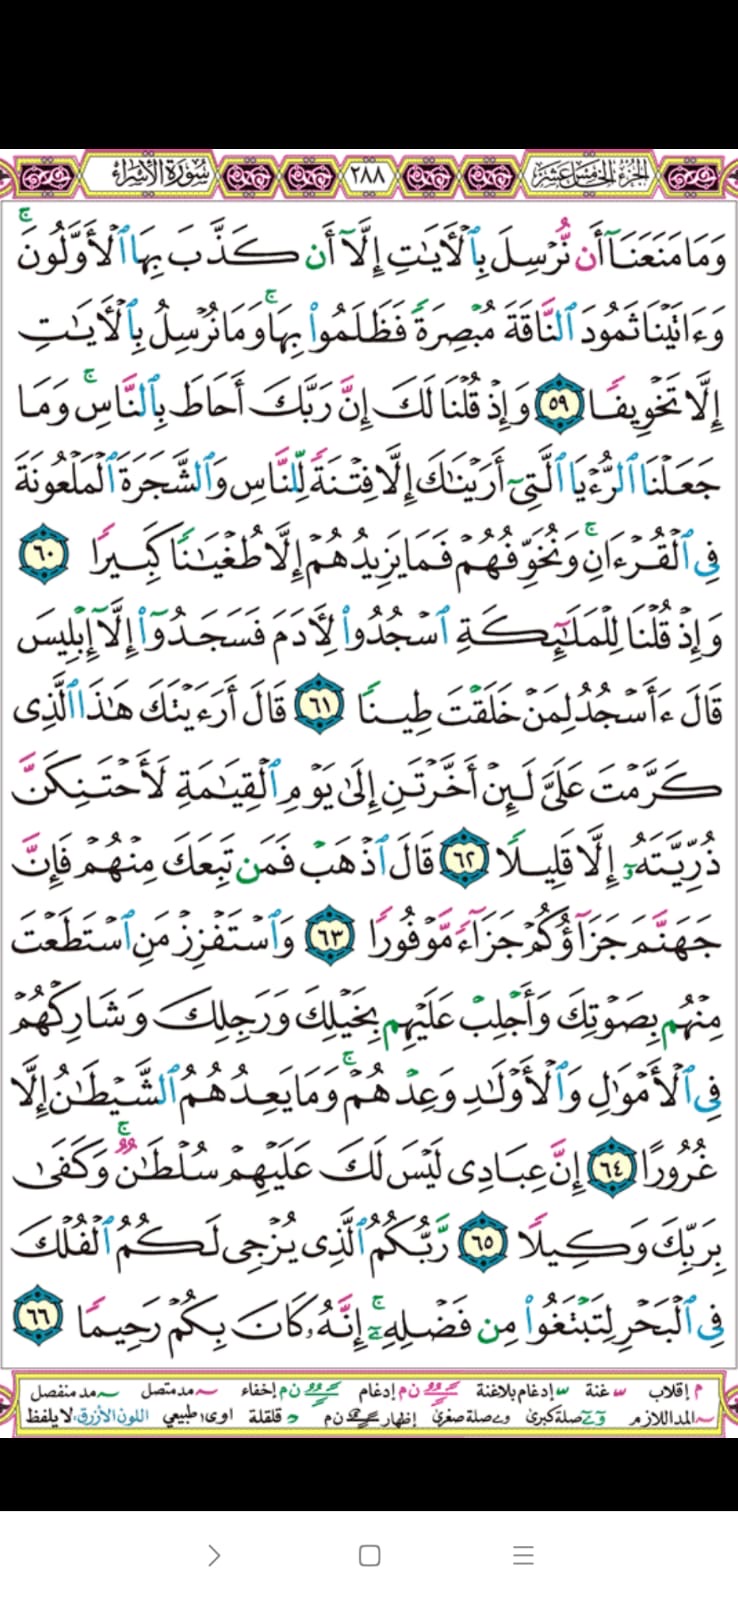 الجزء الخامس عشر ٢٨٨ سورة الإسراء
وَمَا مَنَعَنَآ أَن نُّرْسِلَ بِٱلْأَيَٰتِ إِلَّآ أَن كَذَّبَ بِهَا ٱلْأَوَّلُونَۚ
وَءَاتَيْنَا ثَمُودَ ٱلنَّاقَةَ مُبْصِرَةً فَظَلَمُوا۟ بِهَاۚ وَمَا نُرْسِلُ بِٱلْأَيَٰتِ
إِلَّا تَخْوِيفًا ٥٩ وَإِذْ قُلْنَا لَكَ إِنَّ رَبَّكَ أَحَاطَ بِٱلنَّاسِۚ وَمَا
جَعَلْنَا ٱلرُّءْيَا ٱلَّتِىٓ أَرَيْنَٰكَ إِلَّا فِتْنَةً لِّلنَّاسِ وَٱلشَّجَرَةَ ٱلْمَلْعُونَةَ
فِى ٱلْقُرْءَانِۚ وَنُخَوِّفُهُمْ فَمَا يَزِيدُهُمْ إِلَّا طُغْيَٰنًا كَبِيرًا ٦٠
وَإِذْ قُلْنَا لِلْمَلَٰٓئِكَةِ ٱسْجُدُوا۟ لِأَدَمَ فَسَجَدُوٓا۟ إِلَّآ إِبْلِيسَ
قَالَ ءَأَسْجُدُ لِمَنْ خَلَقْتَ طِينًا ٦١ قَالَ أَرَءَيْتَكَ هَٰذَا ٱلَّذِى
كَرَّمْتَ عَلَىَّ لَئِنْ أَخَّرْتَنِ إِلَىٰ يَوْمِ ٱلْقِيَٰمَةِ لَأَحْتَنِكَنَّ
ذُرِّيَّتَهُۥٓ إِلَّا قَلِيلًا ٦٢ قَالَ ٱذْهَبْ فَمَن تَبِعَكَ مِنْهُمْ فَإِنَّ
جَهَنَّمَ جَزَآؤُكُمْ جَزَآءً مَّوْفُورًا ٦٣ وَٱسْتَفْزِزْ مَنِ ٱسْتَطَعْتَ
مِنْهُم بِصَوْتِكَ وَأَجْلِبْ عَلَيْهِم بِخَيْلِكَ وَرَجِلِكَ وَشَارِكْهُمْ
فِى ٱلْأَمْوَٰلِ وَٱلْأَوْلَٰدِ وَعِدْهُمْۚ وَمَا يَعِدُهُمُ ٱلشَّيْطَٰنُ إِلَّا
غُرُورًا ٦٤ إِنَّ عِبَادِى لَيْسَ لَكَ عَلَيْهِمْ سُلْطَٰنٌۚ وَكَفَىٰ
بِرَبِّكَ وَكِيلًا ٦٥ رَّبُّكُمُ ٱلَّذِى يُزْجِى لَكُمُ ٱلْفُلْكَ
فِى ٱلْبَحْرِ لِتَبْتَغُوا۟ مِن فَضْلِهِۦٓۚ إِنَّهُۥ كَانَ بِكُمْ رَحِيمًا ٦٦
م إقلاب غنة إدغام بلاغنة ن م إدغام ن م إخفاء مد متصل مد منفصل
المد اللازم صلة كبرى صلة صغرى إظهار ن م د قلقلة اوى طبيعي اللون الأزرق: لا يلفظ